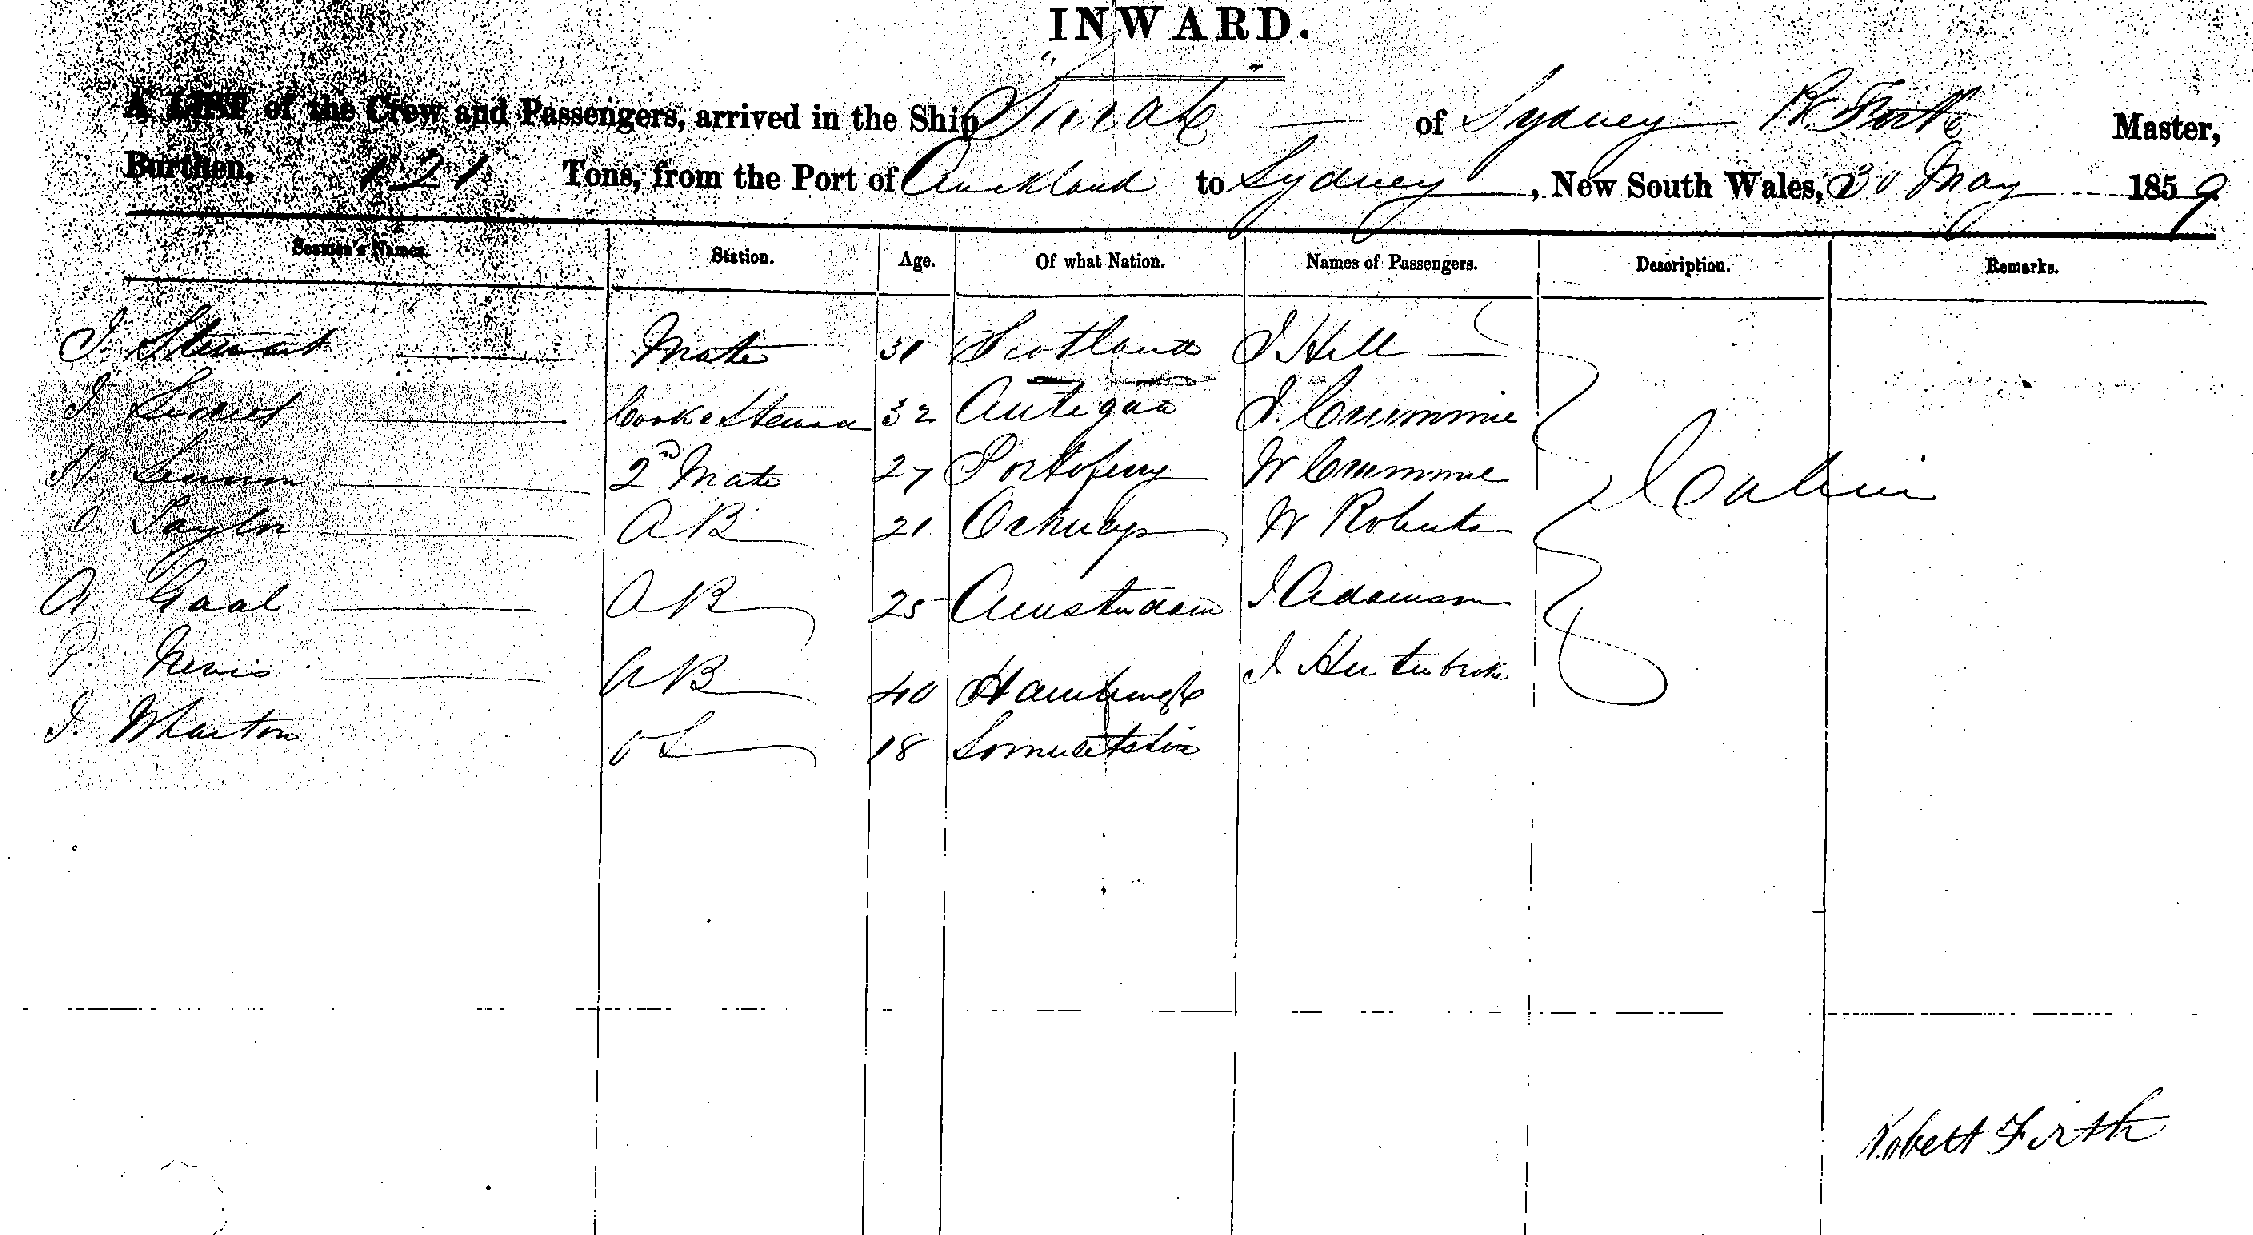 INWARD.
A LIST of the Crew and Passengers, arrived in the Ship "Surat" of Sydney R. Firth Master,
Burthen, 121 Tons, from the Port of Auckland to Sydney, New South Wales, 30 May 1859
Seamen's Names. Station. Age. Of what Nation. Names of Passengers. Description. Remarks.
J. Stewart Mate 31 Scotland J. Hill
J. Cook & Steward 32 Antigua J. Crummie
2nd Mate 27 W Crummie
Taylor A B 21 Orkneys W Roberts
A. Gaal A B 25 Amsterdam J Adamson
Cabin
P. Nevis A B 40 Hamburgh J.
J. Wharton O S 18 Somersetshire
Robert Firth